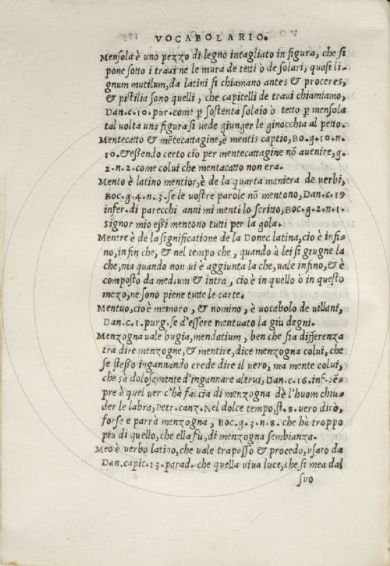 VOCABOLARIO.
Mensola è uno pezzo di legno intagliato in figura, che si
pone sotto i travi ne le mura de tetti ò de solari, quasi li-
gnum mutilum, da latini si chiamano antes & proceres,
& pistilia sono quelli, che capitelli de travi chiamiamo,
Dan.c.10.pur.come p sostenta solaio ò tetto p mensola
tal uolta una figura si uede giunger le ginocchia al petto.
Mentecatto & mētecattagine, è mentis captio, Bo.g.10.n.
10.& essendo certo cio per mentecattagine nō auenire, g.
2.n.2.come colui che mentacatto non era.
Mento è latino mentior, è de la quarta maniera de uerbi,
Boc.g.4.n.3.se le uostre parole nō mentono, Dan.c.19
infer.di parecchi anni mi mentì lo scritto, Boc.g.2.n.1.
signor mio essi mentono tutti per la gola.
Mentre è de la significatione de la Donec latina, cio è infi-
no, infin che, & nel tempo che, quando à lei si giugne la
che, ma quando non ui è aggiunta la che, uale infino, & è
composto da medium & intra, cio è in quello ò in questo
mezo, ne sono piene tutte le carte.
Mentuo, cio è memoro, & nomino, è uocabolo de uillani,
Dan.c.1.purg.se d'essere mentuato la giu degni.
Menzogna uale bugia, mendatium, ben che sia differenza
tra dire menzogne, & mentire, dice menzogna colui, che
se stesso ingannando crede dire il uero, ma mente colui,
che sà dolosamente d'ingannare altrui, Dan.c.16.inf.sē-
pre à quel uer c'hà faccia di menzogna dè l'huom chiu-
der le labra, Petr.canz.Nel dolce tempo, st.8.uero dirò,
forse e parrà menzogna, Boc.g.3.n.8.che hà troppo
piu di quello, che ella fù, di menzogna sembianza.
Meo è uerbo latino, che uale trapasso & procedo, usato da
Dan.capit.13.parad.che quella uiua luce, che si mea dal
suo